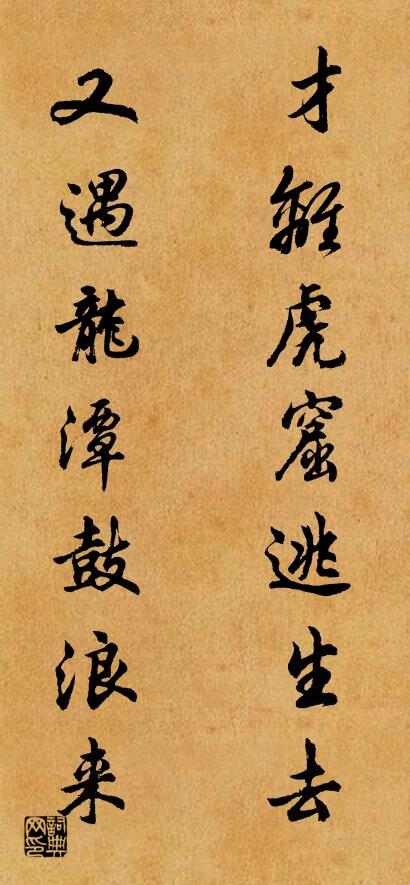 才離虎窟逃生去
又遇龍潭鼓浪来
詞典网印